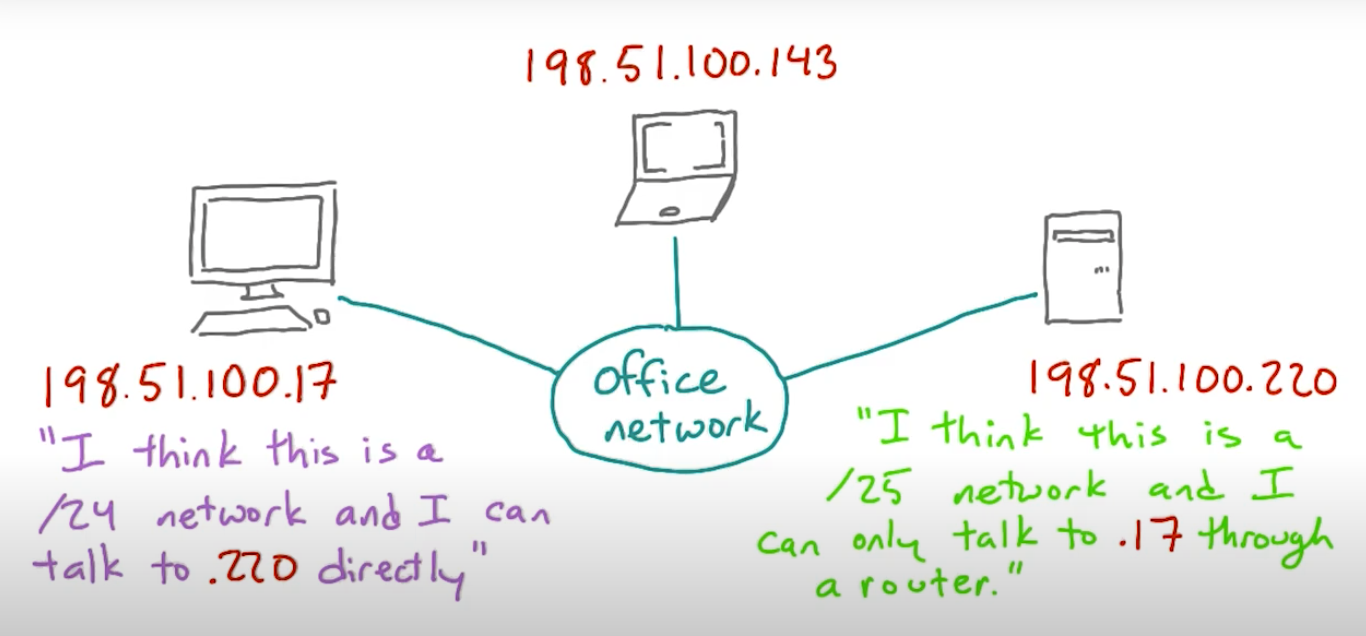 198.51.100.143
198.51.100.17
"I think this is a
/24 network and I can
talk to .220 directly"
office
network
198.51.100.220
"I think this is a
/25 network and I
can only talk to .17 through
a router."